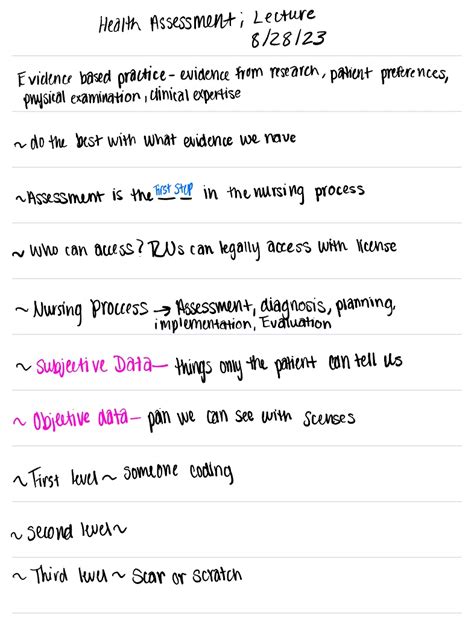 Health Assessment; Lecture
8/28/23
Evidence based practice - evidence from research, patient preferences,
physical examination, clinical expertise
~ do the best with what evidence we have
~ Assessment is the First Step in the nursing process
~ Who can access? RNs can legally access with license
~ Nursing Proccess → Assessment, diagnosis, planning,
implementation, Evaluation
~ Subjective Data — things only the patient can tell us
~ Objective data — pain we can see with scenses
~ First level ~ someone coding
~ Second level ~
~ Third level ~ Scar or scratch